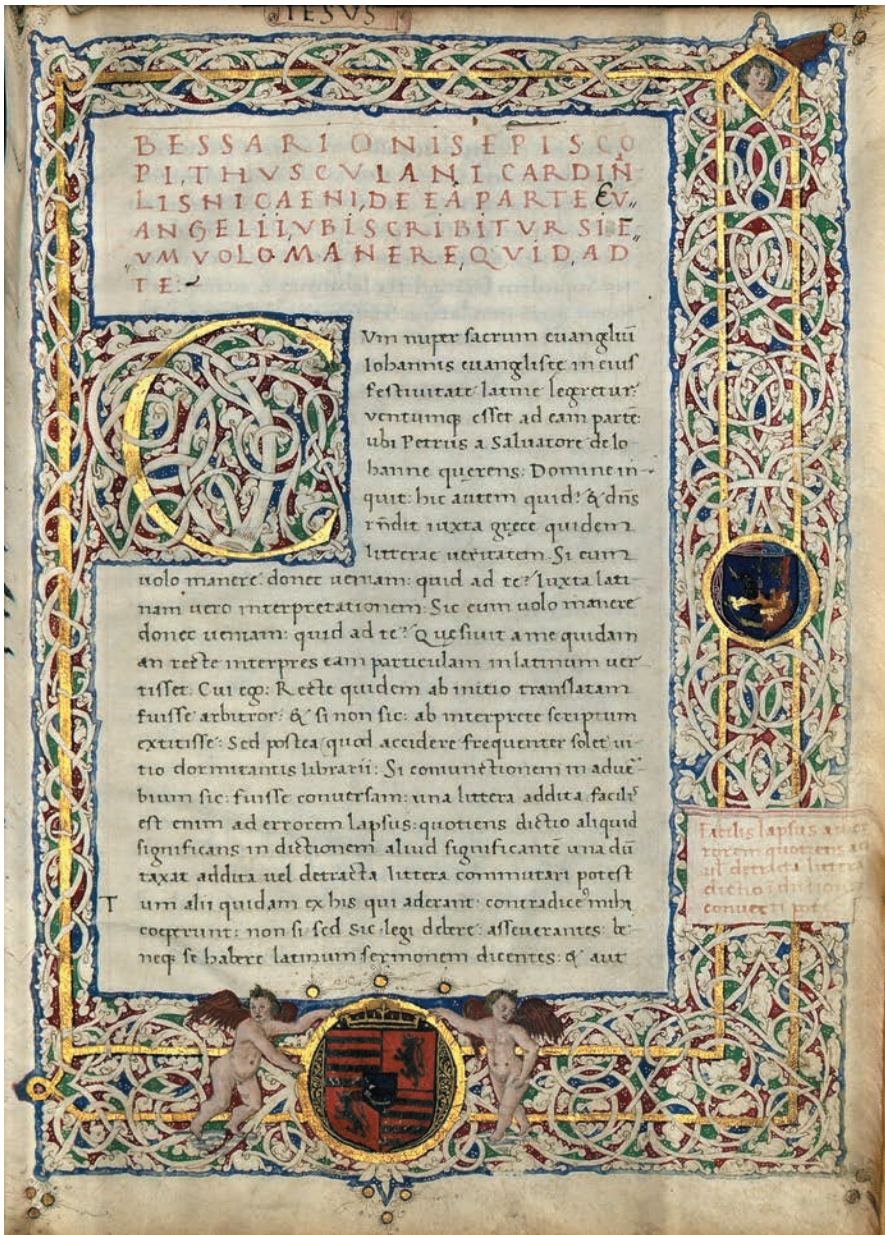 IESVS
BESSARIONIS EPISCO
PI, THVSCVLANI CARDIÑ
LIS NICAENI, DE EA PARTE EV„
ANGELII, VBI SCRIBITVR SI E„
„VM VOLO MANERE, QVID, AD
TE
CVm nuper sacrum euangliũ
Iohannis euangliste in eius
festiuitate latine legretur:
ventumq; esset ad eam partẽ:
ubi Petrus a Saluatore de Io
hanne querens: Domine in
quit: hic autem quid? & dñs
rñdit iuxta grece quidem
litterae ueritatem. Si eum
uolo manere: donec ueniam: quid ad te? Iuxta lati
nam uero interpretationem: Sic eum uolo manere
donec ueniam: quid ad te? Quesiuit a me quidam
an recte interpres eam particulam in latinum uer
tisset. Cui ego: Recte quidem ab initio translatam
fuisse arbitror: & si non sic: ab interprete scriptum
extitisse: Sed postea quod accidere frequenter solet ui
tio dormitantis librarii: Si coniunctionem in aduer
bium sic: fuisse conuersam: una littera addita facilis
est enim ad errorem lapsus: quotiens dictio aliquid
significans in dictionem aliud significantẽ una dũ
taxat addita uel detracta littera commutari potest
Tum alii quidam ex his qui aderant: contradice᷒ mihi
coeperunt: non si sed Sic legi debere: asseuerantes: be
neq; se habere latinum sermonem dicentes: & aut
Facilis lapsus ad er
rorem quotiens ad
ul detracta littera
dictio i dictionẽ
conuerti pote